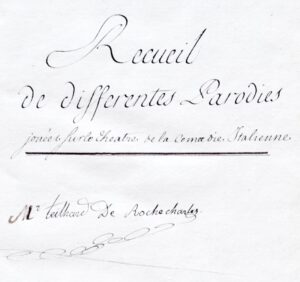 Recueil
de differentes Parodies
jouées sur le Theatre de la Comœdie Italienne
Mr. teilhard De Rochecharles